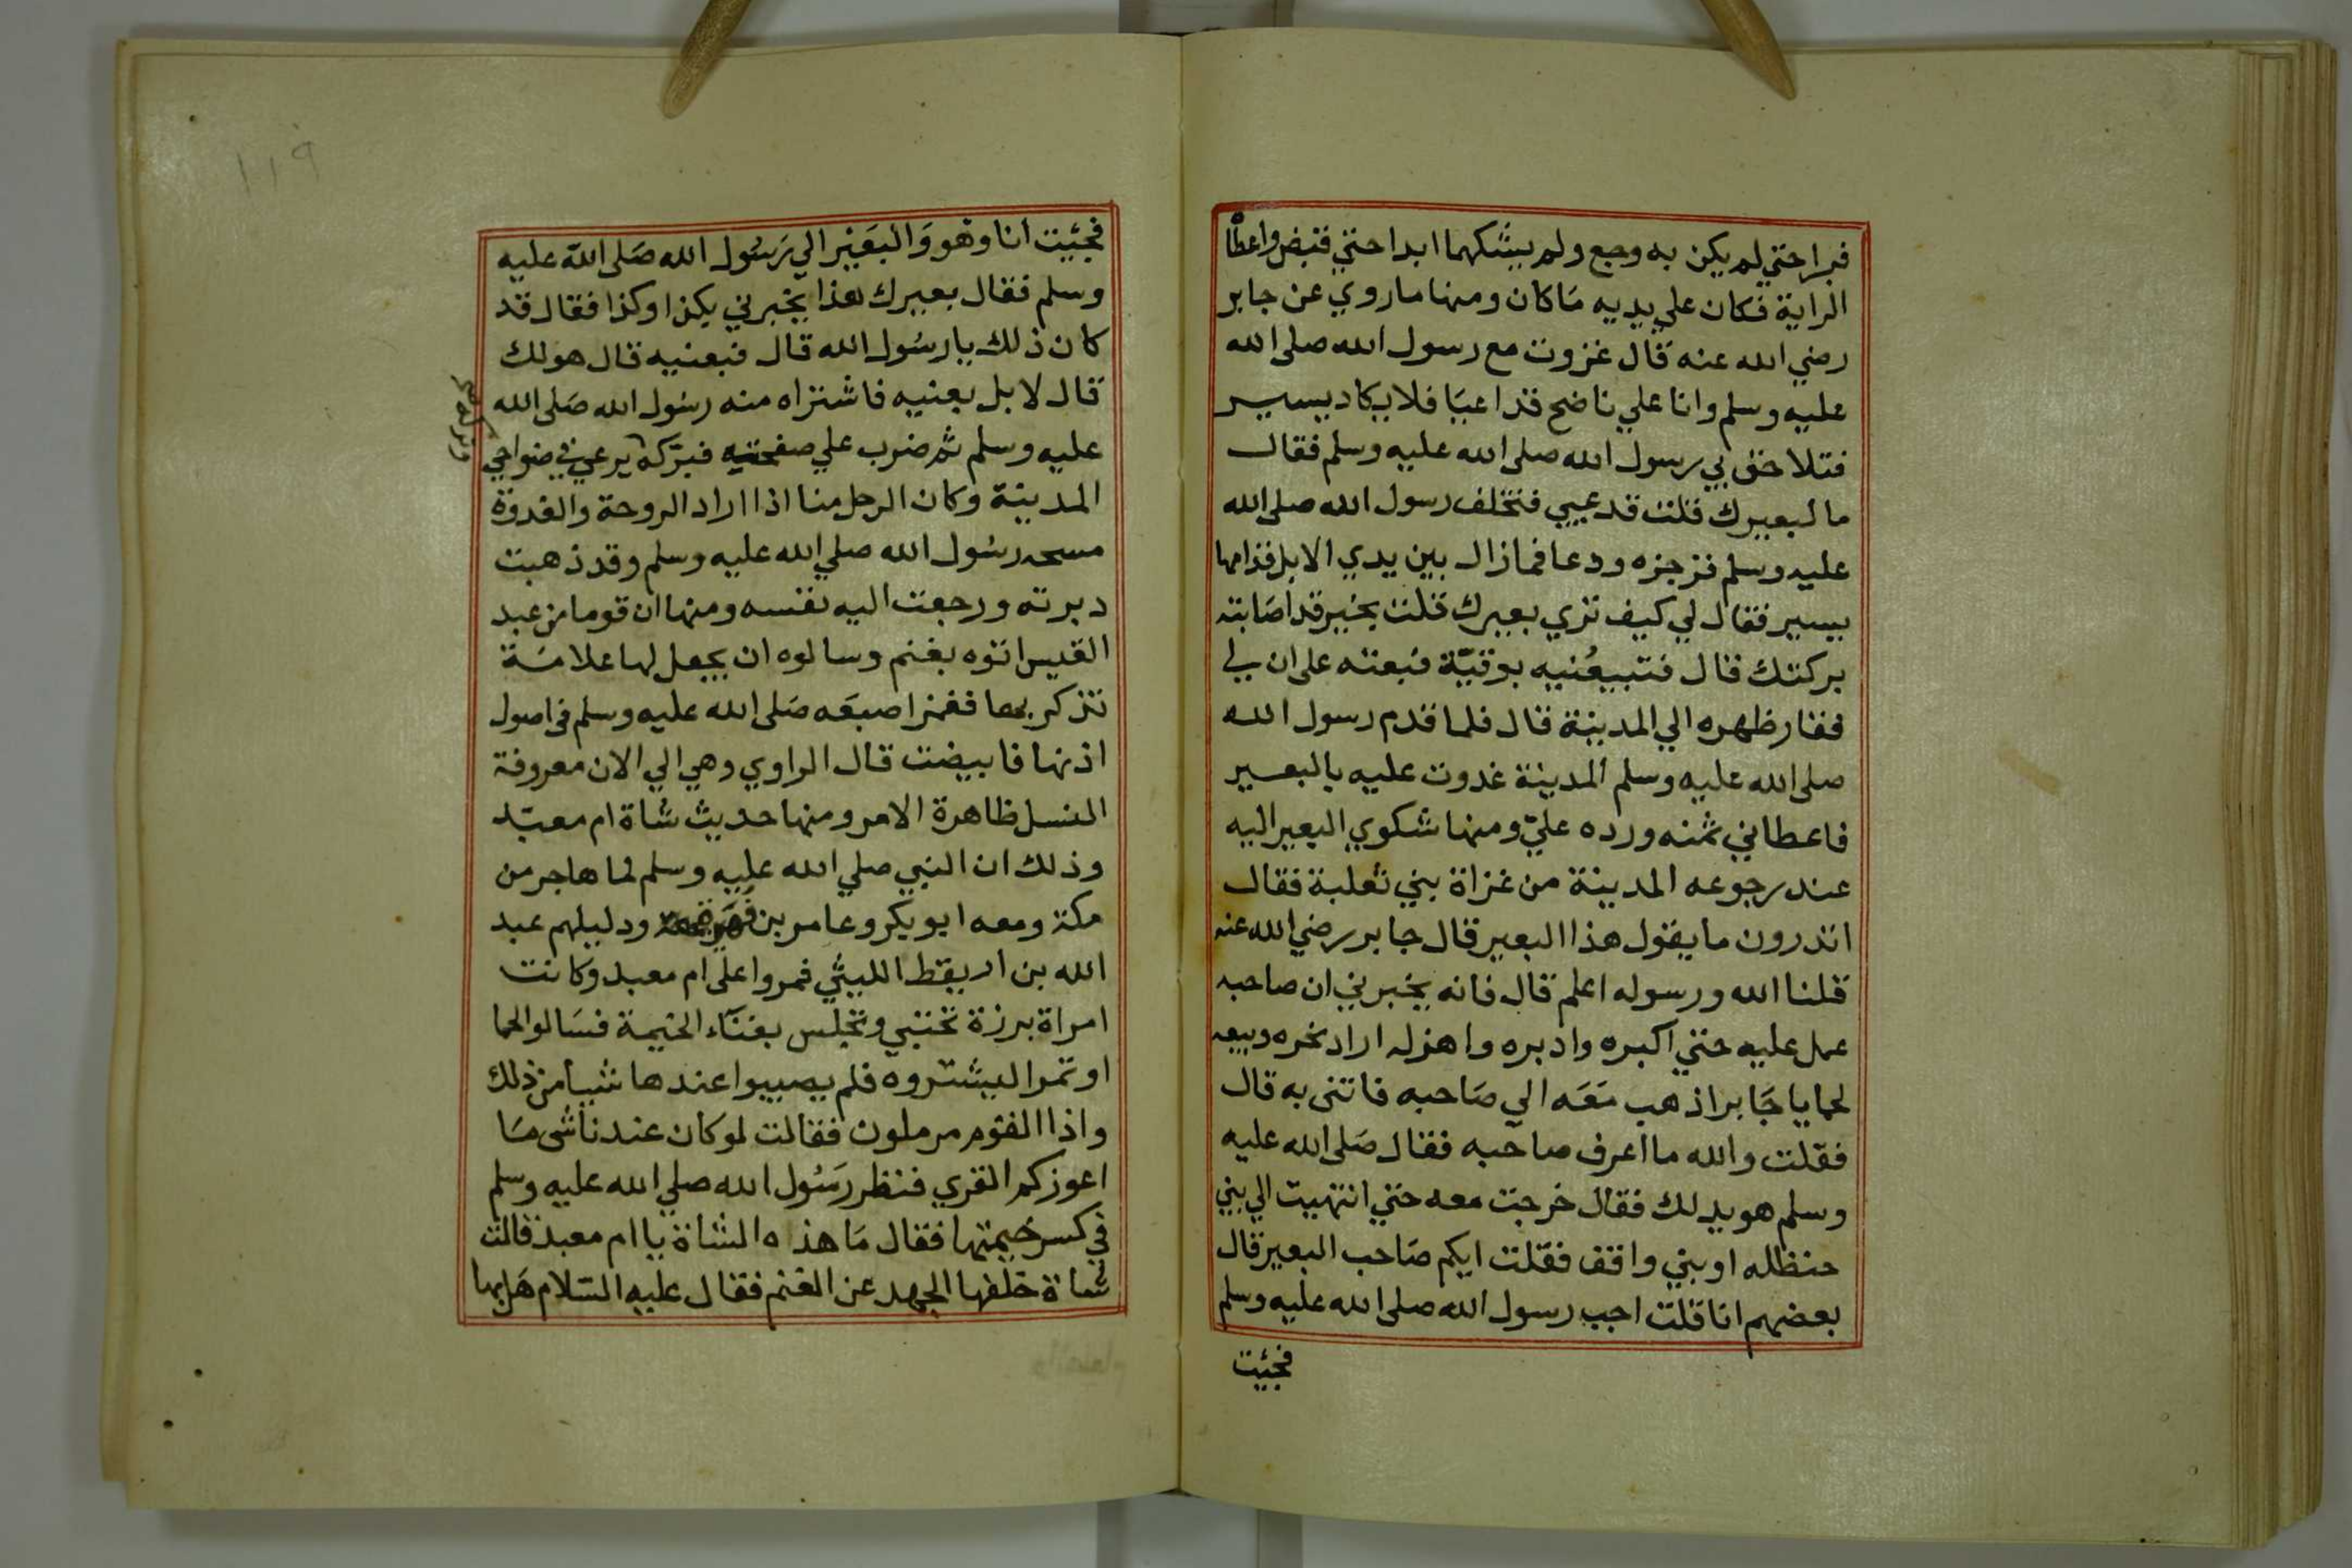 فبرا حتي لم يكن به وجع ولم يشكهما ابدا حتي قبض واعطاه
الراية فكان علي يديه مَا كان ومنها ما روي عن جابر
رضي الله عنه قال غزوت مع رسول الله صلى الله
عليه وسلم وانا علي ناضح قد اعيَا فلا يكاد يسير
فتلاحق بي رسول الله صلى الله عليه وسلم فقال
ما لبعيرك قلت قد عيي فتخلف رسول الله صلى الله
عليه وسلم فزجزه ودعا فما زال بين يدي الابل قدامها
يسير فقال لي كيف تري بعيرك قلت بخير قد اصَابته
بركتك قال فتبيعُنيه بوقيّة فبعته على ان لي
فقار ظهره الي المدينة قال فلما قدم رسول الله
صلى الله عليه وسلم المدينة غدوت عليه بالبعير
فاعطاني ثمنه ورده عليّ ومنها شكوي البعير اليه
عند رجوعه المدينة من غزاة بني ثعلبة فقال
اتدرون ما يقول هذا البعير قال جابر رضي الله عنه
قلنا الله ورسوله اعلم قال فانه يخبرني ان صاحبه
عمل عليه حتي اكبره وادبره واهزله اراد نحره وبيعه
لحما يا جَابر اذهب مَعَه الي صَاحبه فاتنى به قال
فقلت والله ما اعرف صاحبه فقال صَلى الله عليه
وسلم هو يدلك فقال خرجت معه حتي انتهيت الي بني
حنظله او بني واقف فقلت ايكم صَاحب البعير قال
بعضهم انا قلت اجب رسول الله صلى الله عليه وسلم
فجئيت
١١٩
فجئيت انا وهو وَالبعَيْر الي رَسُول الله صَلى الله عليه
وسلم فقال بعيرك هذا يخبرني بكذا وكذا فقال قد
كان ذلك يا رسُول الله قال فبعنيه قال هو لك
قال لا بل بعنيه فاشتراه منه رسُول الله صَلى الله
عليه وسلم ثم ضرب علي صفحتيه فبرّكه يرعي في ضواحي
المدينة وكان الرجل منا اذا اراد الروحة والغدوة
مسحه رسُول الله صلي الله عليه وسلم وقد ذهبت
دبرته ورجعت اليه نفسه ومنها ان قوما من عبد
القيس اتوه بغنم وسالوه ان يجعل لها علامَة
تذكر بها فغمز اصبعَه صَلى الله عليه وسلم في اصول
اذنها فابيضت قال الراوي وهي الي الان معروفة
النسل ظاهرة الامر ومنها حديث شاة ام معبَد
وذلك ان النبي صلي الله عليه وسلم لما هاجر من
مكة ومعه ابو بكر وعامر بن ودليلهم عبد
الله بن اريقط الليثي فمروا على ام معبد وكانت
امراة برزة تحتبي وتجلس بفنَاء الخيمة فسَالوا لحما
او تمرا ليشتروه فلم يصيبوا عندها شيأ من ذلك
واذا القوم مرملون فقالت لو كان عندنا شى مَا
اعوزكم القري فنظر رَسُول الله صلي الله عليه وسلم
في كسر خيمتها فقال مَا هذه الشاة يا ام معبد قالت
شاة خلفها الجهد عن الغنم فقال عليه السّلام هَل بها